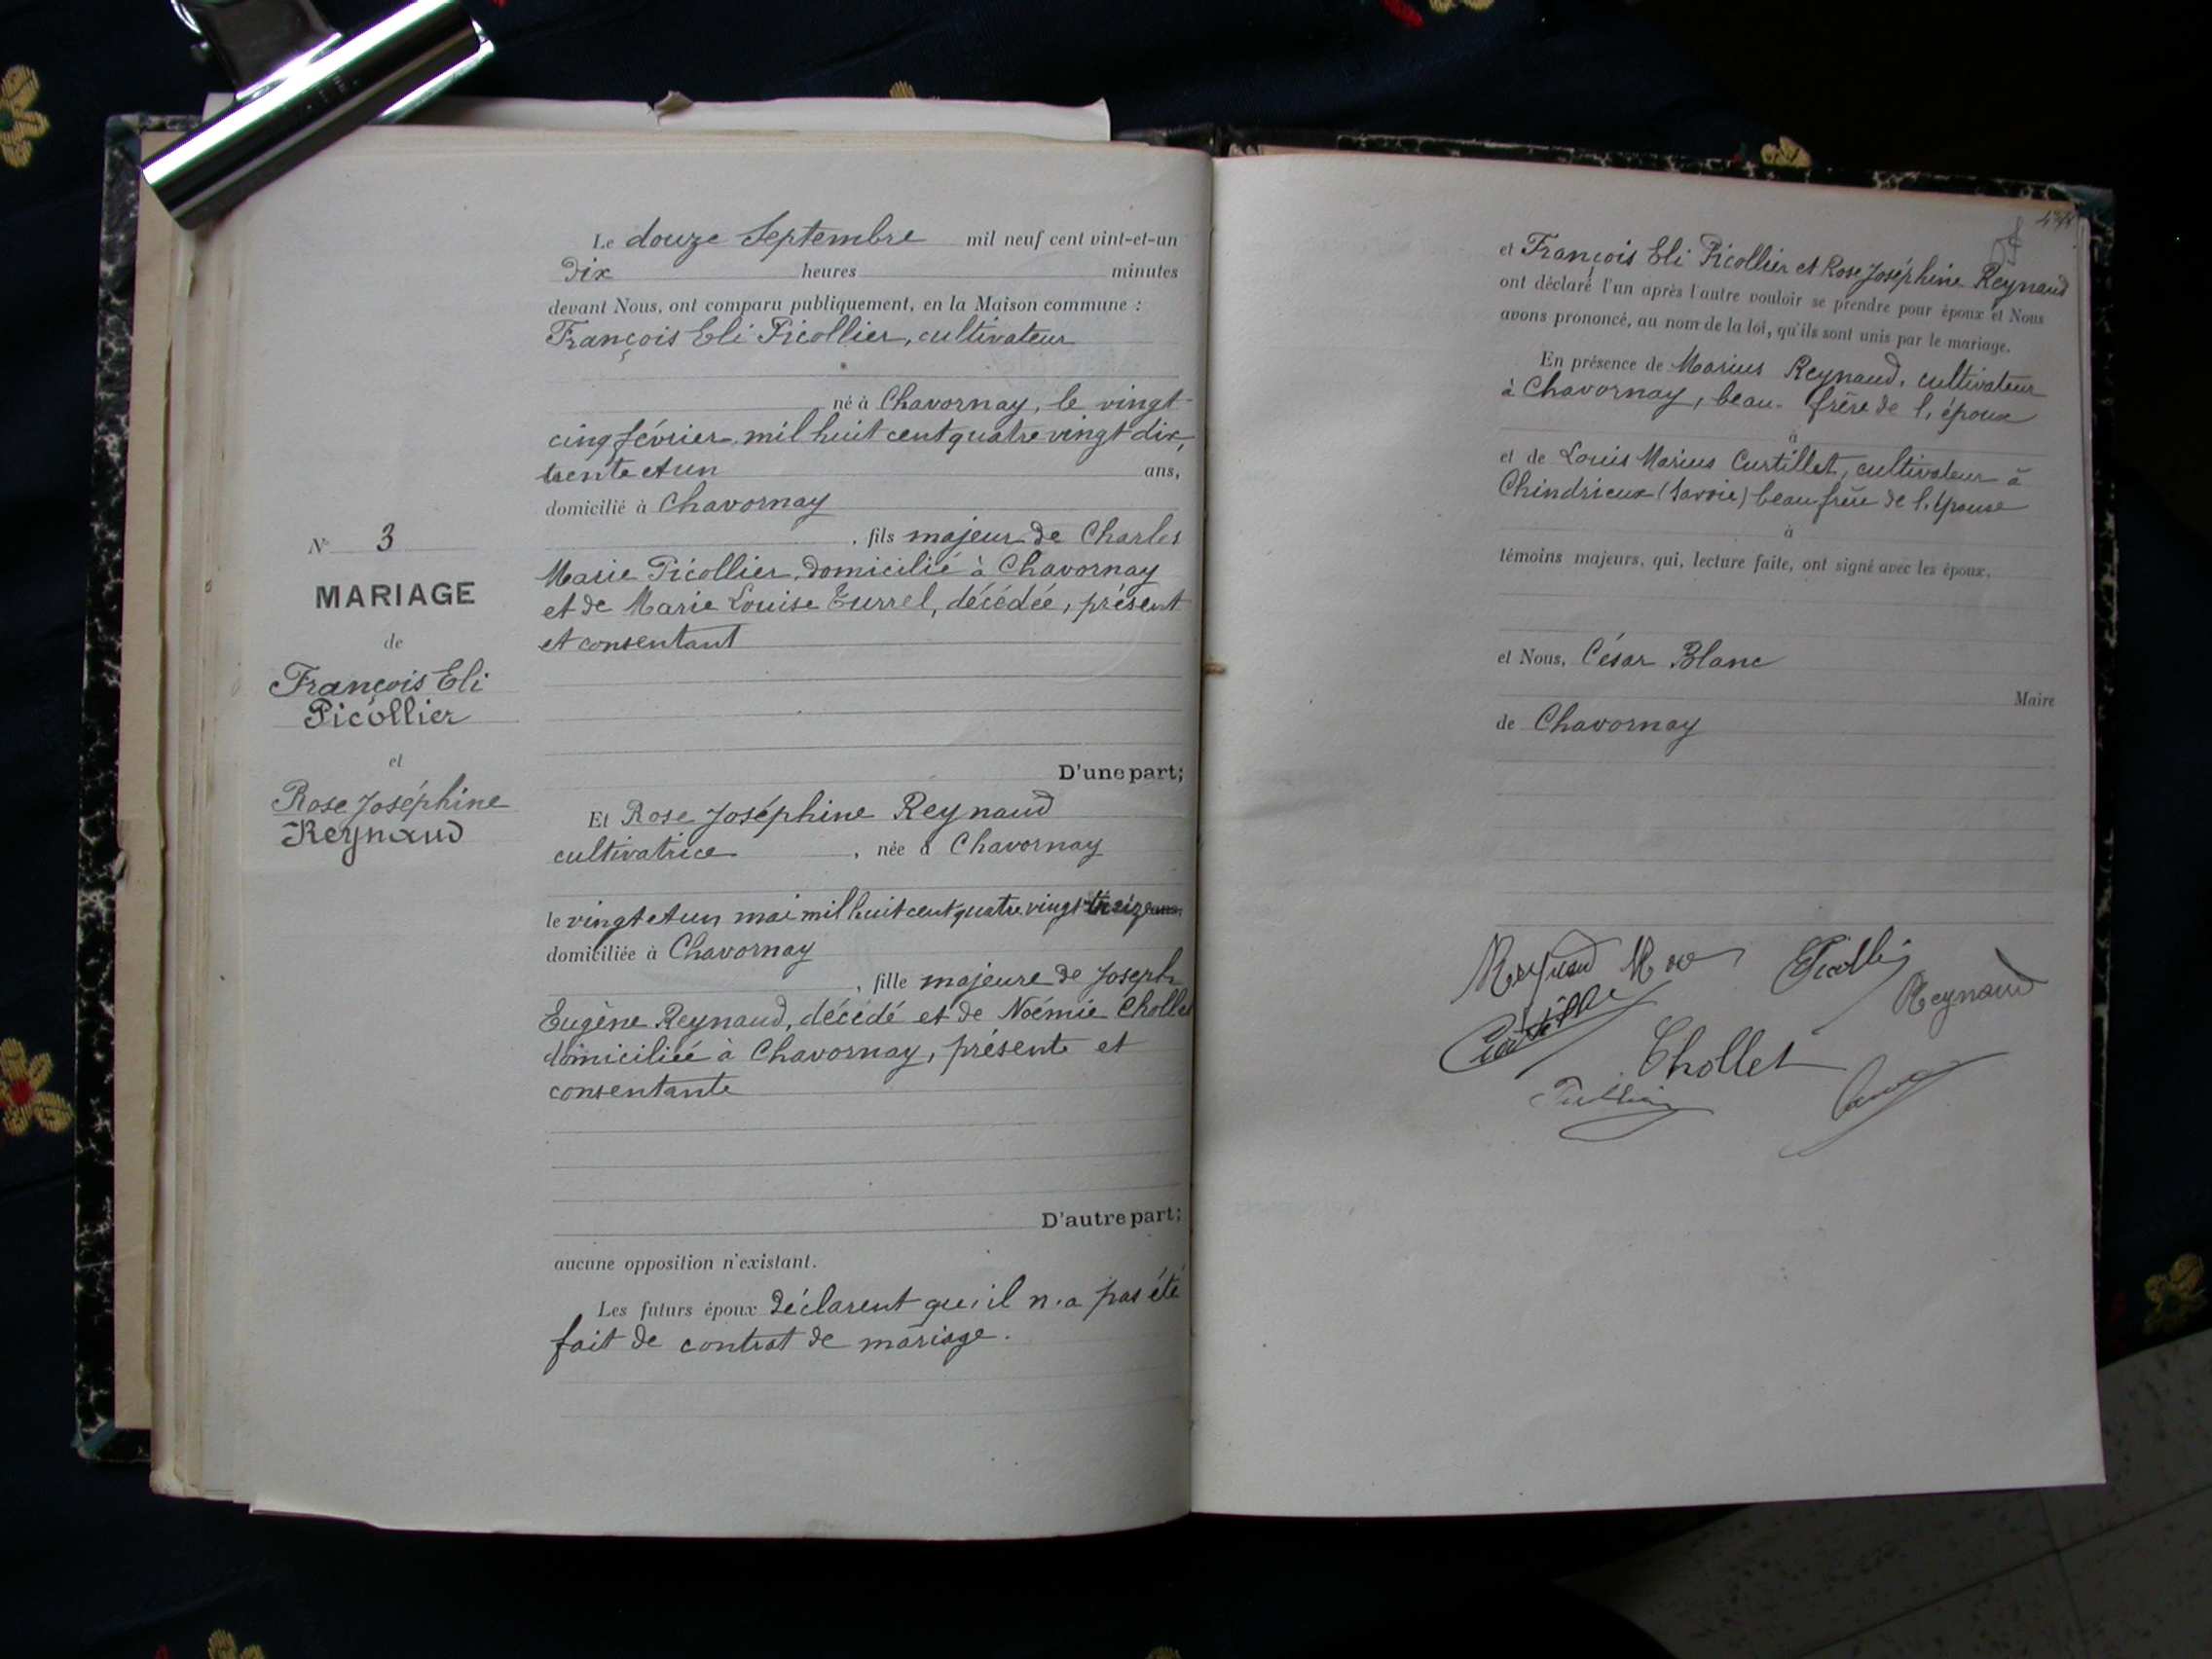 Le douze Septembre mil neuf cent vint-et-un
Dix heures minutes
devant Nous, ont comparu publiquement, en la Maison commune :
François Eli Picollier, cultivateur
né à Chavornay, le vingt-
cinq février mil huit cent quatre vingt dix,
trente et un ans,
domicilié à Chavornay
, fils majeur de Charles
Marie Picollier, domicilié à Chavornay
et de Marie Louise Turrel, décédée, présent
et consentant
D'une part;
N° 3
MARIAGE
de
François Eli
Picollier
et
Rose Joséphine
Reynaud
Et Rose Joséphine Reynaud
cultivatrice , née à Chavornay
le vingt et un mai mil huit cent quatre vingt treize ans,
domiciliée à Chavornay
, fille majeure de Joseph
Eugène Reynaud, décédé et de Noémie Chollet
domiciliée à Chavornay, présente et
consentante
D'autre part;
aucune opposition n'existant.
Les futurs époux déclarent qu'il n'a pas été
fait de contrat de mariage.
et François Eli Picollier et Rose Joséphine Reynaud
ont déclaré l'un après l'autre vouloir se prendre pour époux et Nous
avons prononcé, au nom de la loi, qu'ils sont unis par le mariage.
En présence de Marius Reynaud, cultivateur
à Chavornay, beau-frère de l'époux
à
et de Louis Marius Curtillet, cultivateur à
Chindrieux (Savoie) beau frère de l'épouse
à
témoins majeurs, qui, lecture faite, ont signé avec les époux,
et Nous, César Blanc
Maire
de Chavornay
Reynaud
Reynaud
Chollet